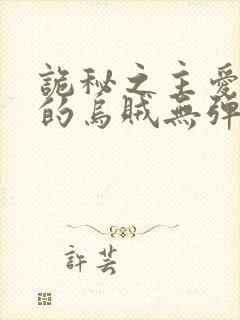 詭秘之主愛
的烏賊無彈
許芸